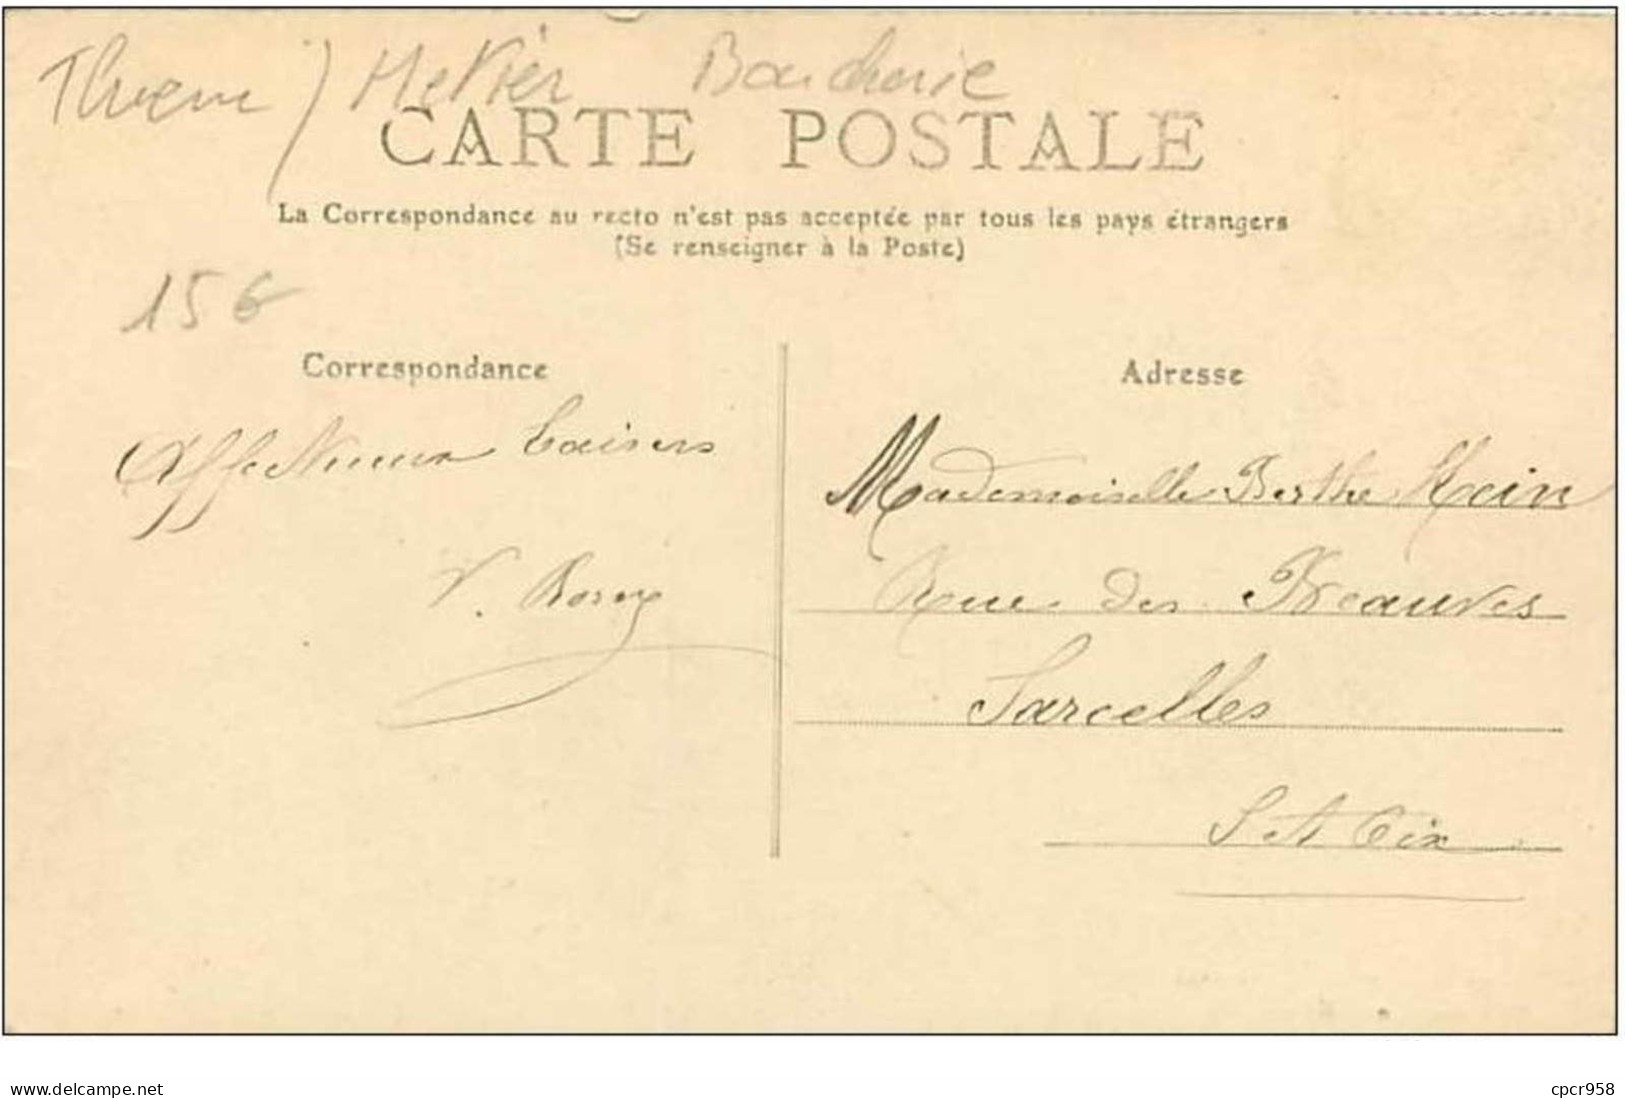 Theme / Metier Boucherie
CARTE POSTALE
La Correspondance au recto n'est pas acceptée par tous les pays étrangers
(Se renseigner à la Poste)
15€
Correspondance
Affectueux baisers
V.
Adresse
Mademoiselle Berthe
Rue des
Sarcelles
S et Oise
www.delcampe.net
cpcr958